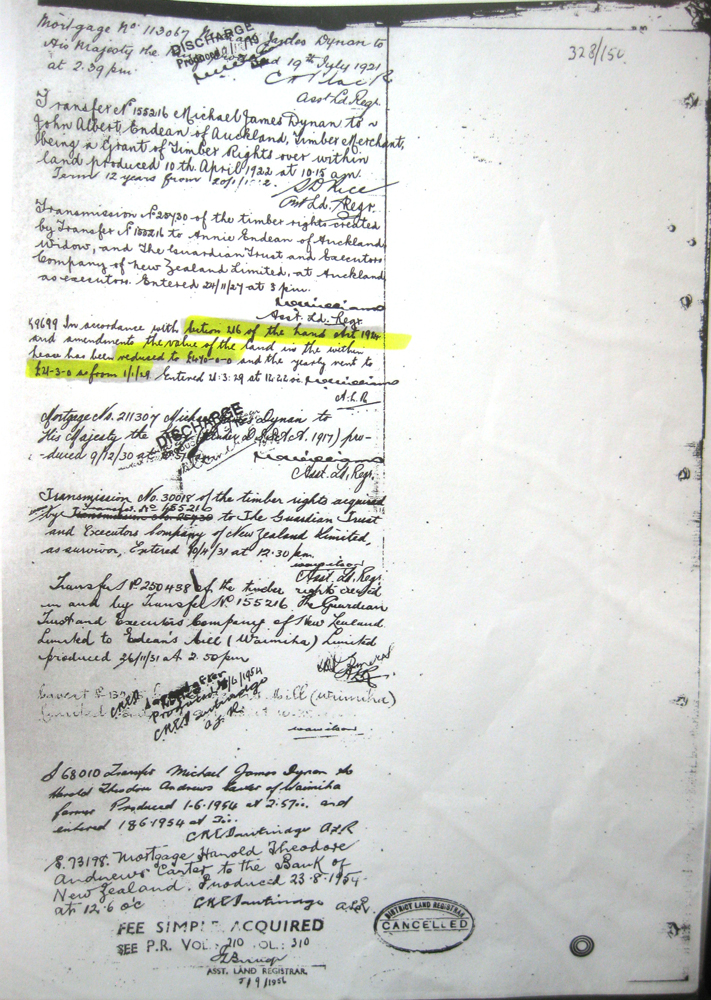 328/150
Mortgage No. 113067 James Dynan to
His Majesty the 19th July 1921
at 2.39 pm.
DISCHARGE
Produced
Asst Ld. Regr.
Transfer No 155216 Michael James Dynan to
John Albert Endean of Auckland, Timber Merchant,
being a Grant of Timber Rights over within
land produced 10th April 1922 at 10.15 am.
Term 12 years from 20/1/
Asst Ld. Regr.
Transmission No 20730 of the timber rights created
by Transfer No 155216 to Annie Endean of Auckland
Widow, and The Guardian Trust and Executors
Company of New Zealand Limited, at Auckland
as executors. Entered 24/11/27 at 3 pm.
Asst. Ld. Regr.
K9699 In accordance with Section 216 of the Land Act 1924
and amendments the value of the land in the within
lease has been reduced to £470-0-0 and the yearly rent to
£21-3-0 as from 1/1/29. Entered 21.3.29 at
A.L.R
Mortgage No. 211307 Michael James Dynan to
His Majesty the (under D.S.S.A.A. 1917) pro-
-duced 9/12/30 at
DISCHARGE
Asst. Ld. Regr.
Transmission No. 30018 of the timber rights acquired
by Transfer No 155216 to The Guardian Trust
and Executors Company of New Zealand Limited,
as survivor, Entered at 12.30 pm.
Asst. Ld. Regr.
Transfer No 250438 of the timber rights created
in and by Transfer No 155216 The Guardian
Trust and Executors Company of New Zealand
Limited to Endean's Mill (Waimiha) Limited
produced 26/11/31 at 2.50 pm
A.L.R.
Caveat Mill (Waimiha)
Limited
Produced /6/1954
A.L.R.
S 68010 Transfer Michael James Dynan to
Harold Theodore Andrews Carter of Waimiha
farmer Produced 1.6.1954 at 2.57 and
entered 18.6.1954 at
A.L.R
S. 73198. Mortgage Harold Theodore
Andrews Carter to the Bank of
New Zealand. Produced 23.8.1954
at 12.6 o'c
A.L.R.
FEE SIMPLE ACQUIRED
SEE P.R. VOL: 210 FOL: 310
ASST. LAND REGISTRAR.
5/9/1956
DISTRICT LAND REGISTRAR
CANCELLED